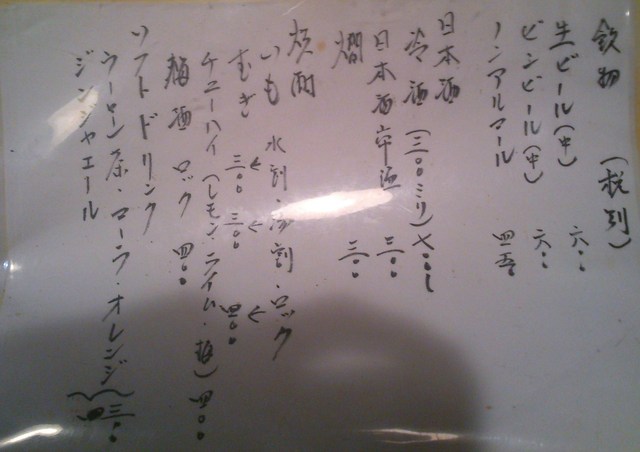 飲物 (税別)
生ビール(中) 六〇〇
ビンビール(中) 六〇〇
ノンアルコール 四五〇
日本酒
冷酒 (三〇〇ミリ) 七〇〇
日本酒 常温 三〇〇
燗 三〇〇
焼酎
いも 水割・湯割・ロック
むぎ 三〇〇 三〇〇 四〇〇
チューハイ (レモン・ライム・梅) 四〇〇
梅酒 ロック 四〇〇
ソフトドリンク
ウーロン茶・コーラ・オレンジ 三〇〇
ジンジャエール